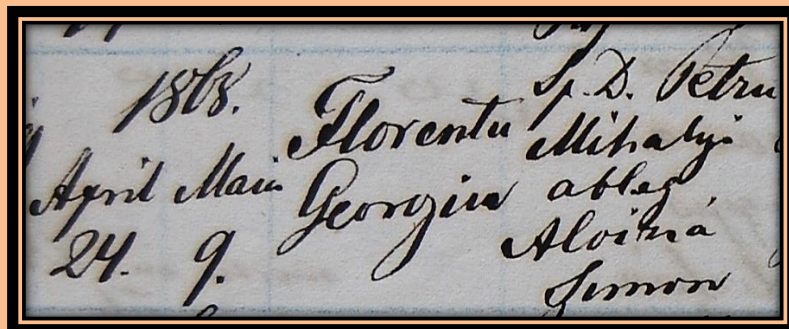 1868.
April Maiu
24. 9.
Florentu
Georgiu
Sp. D. Petru
Mihalyi
ableg.
Aloiziá
Simon